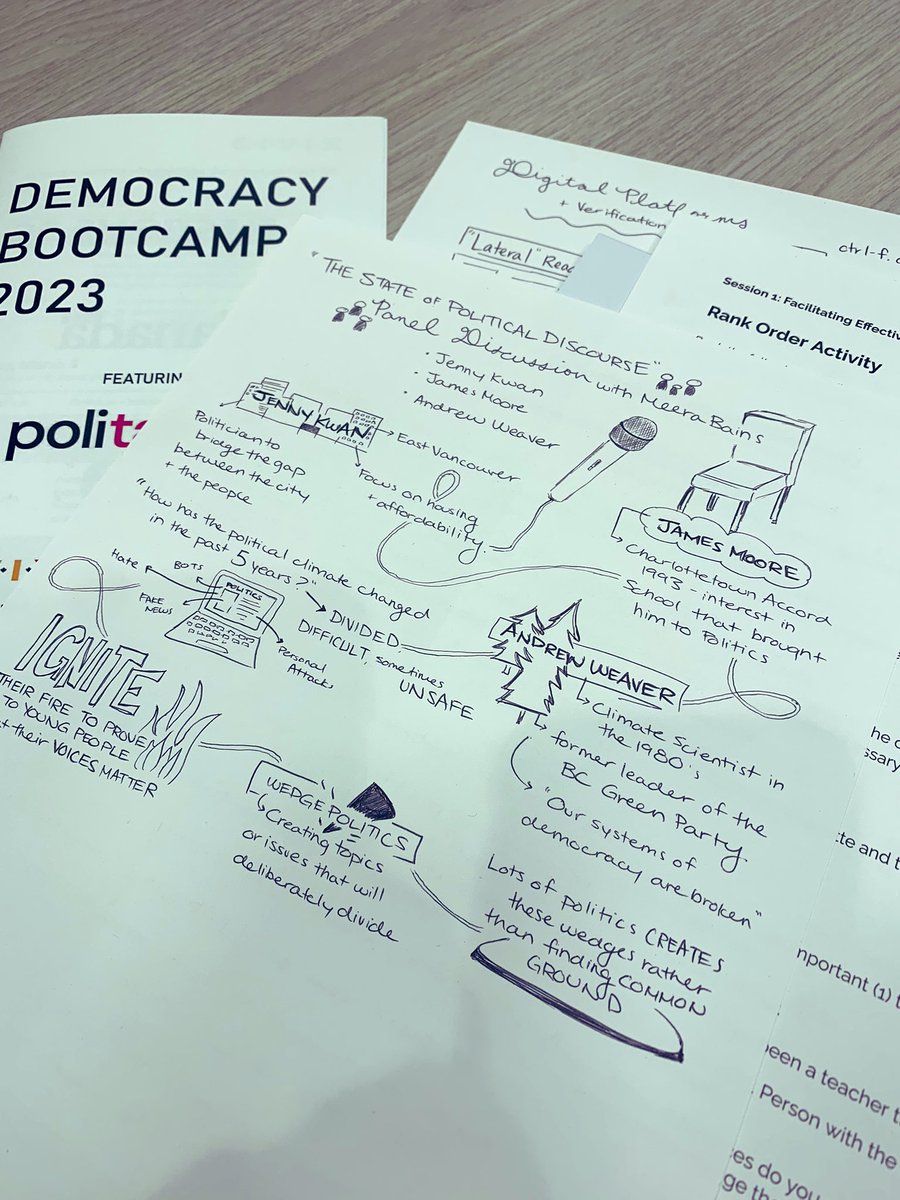 DEMOCRACY
BOOTCAMP
2023
FEATURIN
polit
Digital Platforms
+ Verification
"Lateral" Rea
ctrl-f.
Session 1: Facilitating Effectiv
Rank Order Activity
"THE STATE OF POLITICAL DISCOURSE"
Panel Discussion with Meera Bains
• Jenny Kwan
• James Moore
• Andrew Weaver
JENNY KWAN
East Vancouver
Focus on housing
+ affordability.
Politician to
bridge the gap
between the city
+ the people
JAMES MOORE
Charlottetown Accord
1993 - interest in
School that brought
him to Politics
"How has the political climate changed
in the past 5 years?"
DIVIDED.
DIFFICULT, sometimes
UNSAFE
Hate
BOTS
FAKE
NEWS
POLITICS
Personal
Attacks
ANDREW WEAVER
Climate Scientist in
the 1980's
former leader of the
BC Green Party.
"Our systems of
democracy are broken"
IGNITE
THEIR FIRE TO PROVE
TO YOUNG PEOPLE
their VOICES MATTER
WEDGE POLITICS
Creating topics
or issues that will
deliberately divide
Lots of politics CREATES
these wedges rather
than finding COMMON
GROUND
he
ssary
te and t
nportant (1) t
been a teacher t
Person with the
es do you
ge the